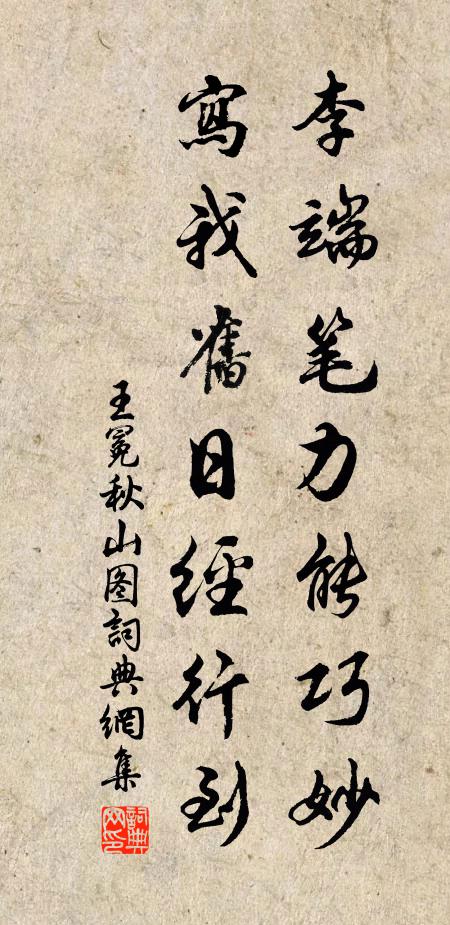 李端笔力能巧妙
寫我舊日經行到
王冕秋山图詞典網集
詞典网印